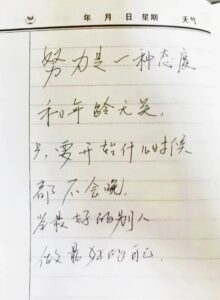 年 月 日 星期 天气
努力是一种态度
和年龄无关.
只要开始什么时候
都不会晚.
学最好的别人
做最好的自己.